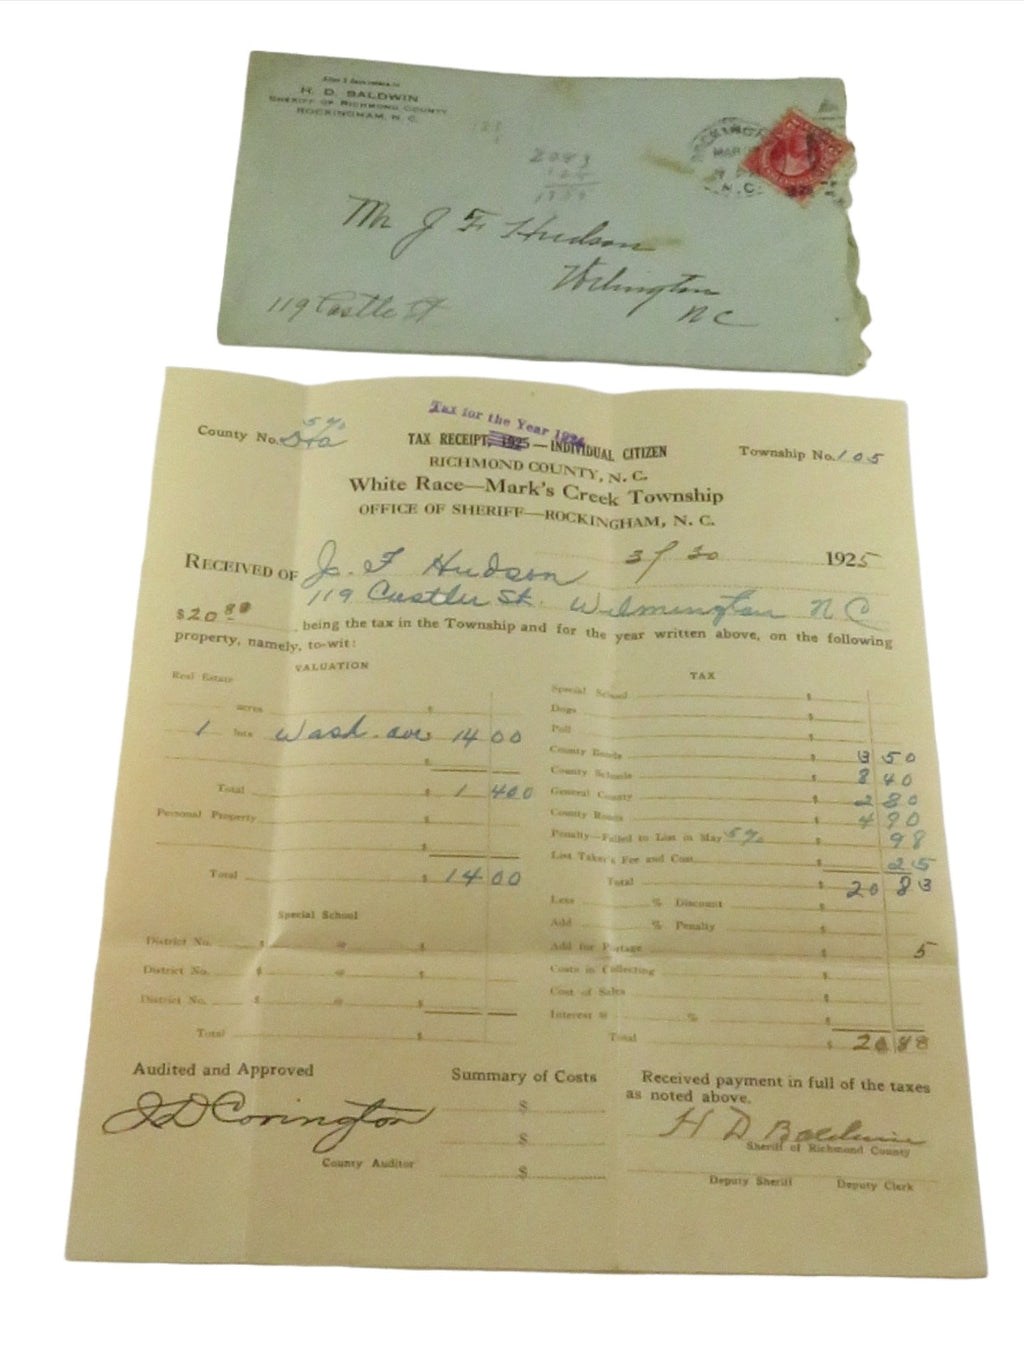 After 5 days return to
H. D. BALDWIN
SHERIFF OF RICHMOND COUNTY
ROCKINGHAM, N. C.
ROCKINGHAM
MAR
N.C.
2083
105
Mr J F Hudson
Wilmington
N C
119 Castle St
Tax for the Year 1924
County No. 5%
TAX RECEIPT, 1925 — INDIVIDUAL CITIZEN
Township No. 105
RICHMOND COUNTY, N. C.
White Race—Mark's Creek Township
OFFICE OF SHERIFF—ROCKINGHAM, N. C.
3/30 1925
RECEIVED OF J. F Hudson
119 Castler St. Wilmington N C
$20 88 being the tax in the Township and for the year written above, on the following
property, namely, to-wit:
VALUATION
Real Estate
acres $
1 lots Wash. ave 14 00
$
Total $ 1 400
Personal Property $
$
Total $ 14 00
Special School
District No. $ @ $
District No. $ @ $
District No. $ @ $
Total $
TAX
Special School $
Dogs $
Poll $
County Bonds $ 3 50
County Schools $ 8 40
General County $ 2 80
County Roads $ 4 90
Penalty—Failed to List in May 5% 98
List Taker's Fee and Cost $ 25
Total $ 20 83
Less % Discount $
Add % Penalty $
Add for Postage $ 5
Costs in Collecting $
Cost of Sales $
Interest @ % $
Total $ 20 88
Audited and Approved
J D Covington
County Auditor
Summary of Costs
$
$
$
Received payment in full of the taxes
as noted above.
H D Baldwin
Sheriff of Richmond County
Deputy Sheriff Deputy Clerk